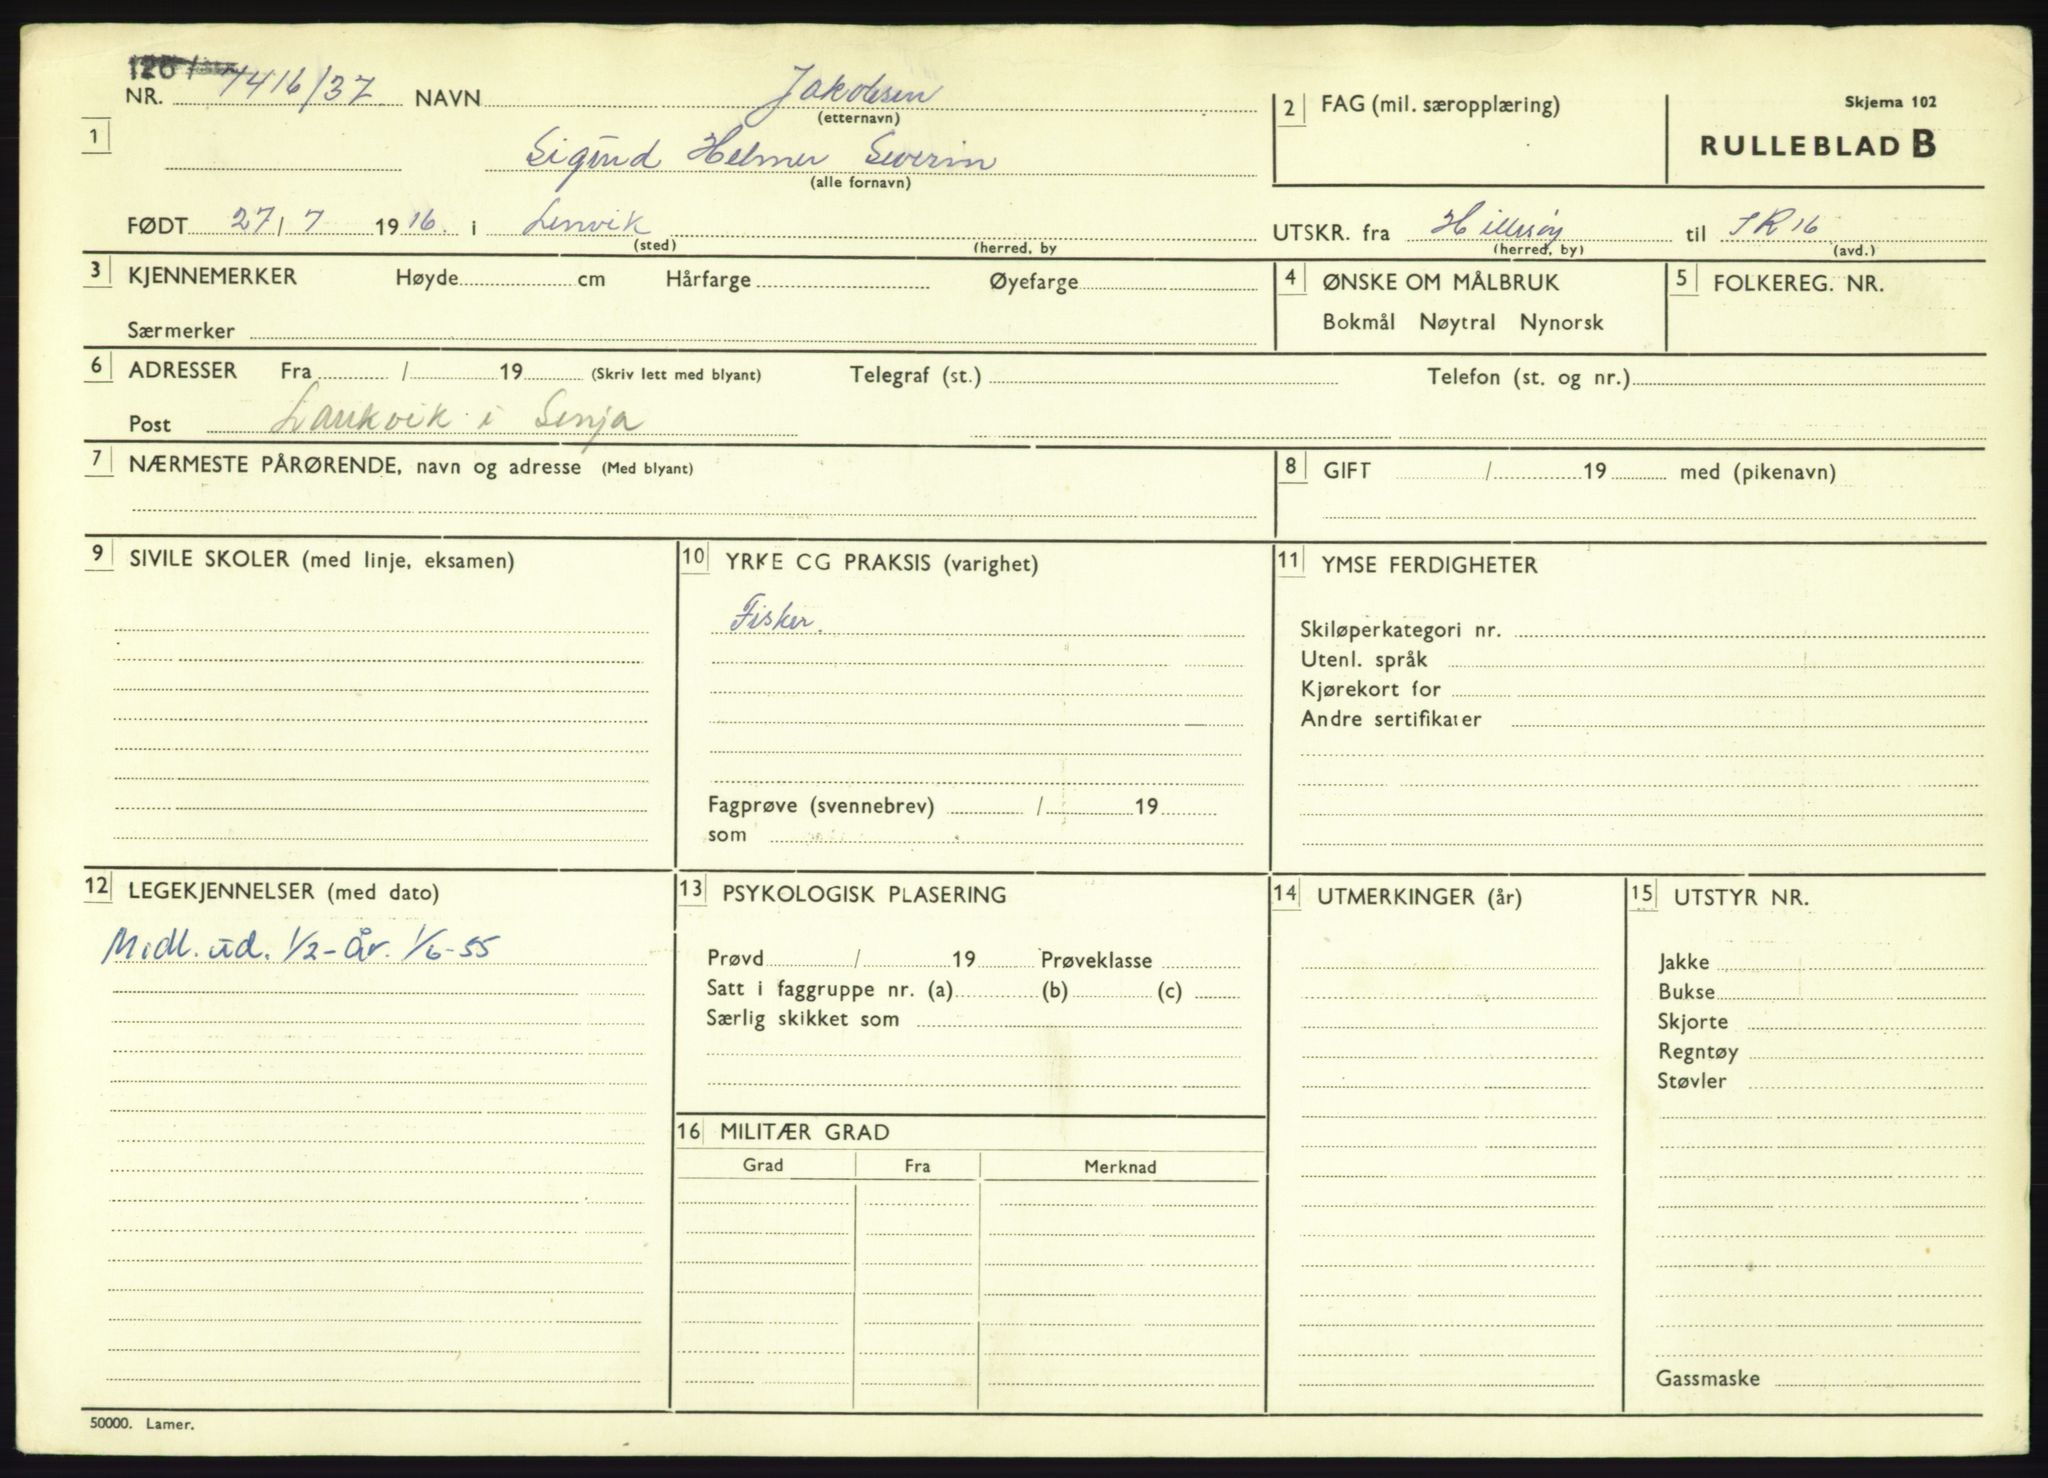 126/
NR. 1416/37 NAVN Jakobsen
(etternavn)
2 FAG (mil. særopplæring)
Skjema 102
RULLEBLAD B
1
Sigurd Helmer Severin
(alle fornavn)
FØDT 27/7 1916. i Lenvik
(sted) (herred, by
UTSKR. fra Hillesøy til IR 16
(herred, by) (avd.)
3 KJENNEMERKER Høyde cm Hårfarge Øyefarge
Særmerker
4 ØNSKE OM MÅLBRUK
Bokmål Nøytral Nynorsk
5 FOLKEREG. NR.
6 ADRESSER Fra / 19 (Skriv lett med blyant) Telegraf (st.) Telefon (st. og nr.)
Post Laukvik i Senja
7 NÆRMESTE PÅRØRENDE, navn og adresse (Med blyant)
8 GIFT / 19 med (pikenavn)
9 SIVILE SKOLER (med linje, eksamen)
10 YRKE CG PRAKSIS (varighet)
Fisker.
Fagprøve (svennebrev) / 19
som
11 YMSE FERDIGHETER
Skiløperkategori nr.
Utenl. språk
Kjørekort for
Andre sertifikater
12 LEGEKJENNELSER (med dato)
Midl. ud. 1/2-År. 1/6-55
13 PSYKOLOGISK PLASERING
Prøvd / 19 Prøveklasse
Satt i faggruppe nr. (a) (b) (c)
Særlig skikket som
14 UTMERKINGER (år)
15 UTSTYR NR.
Jakke
Bukse
Skjorte
Regntøy
Støvler
Gassmaske
16 MILITÆR GRAD
Grad Fra Merknad
50000. Lamer.